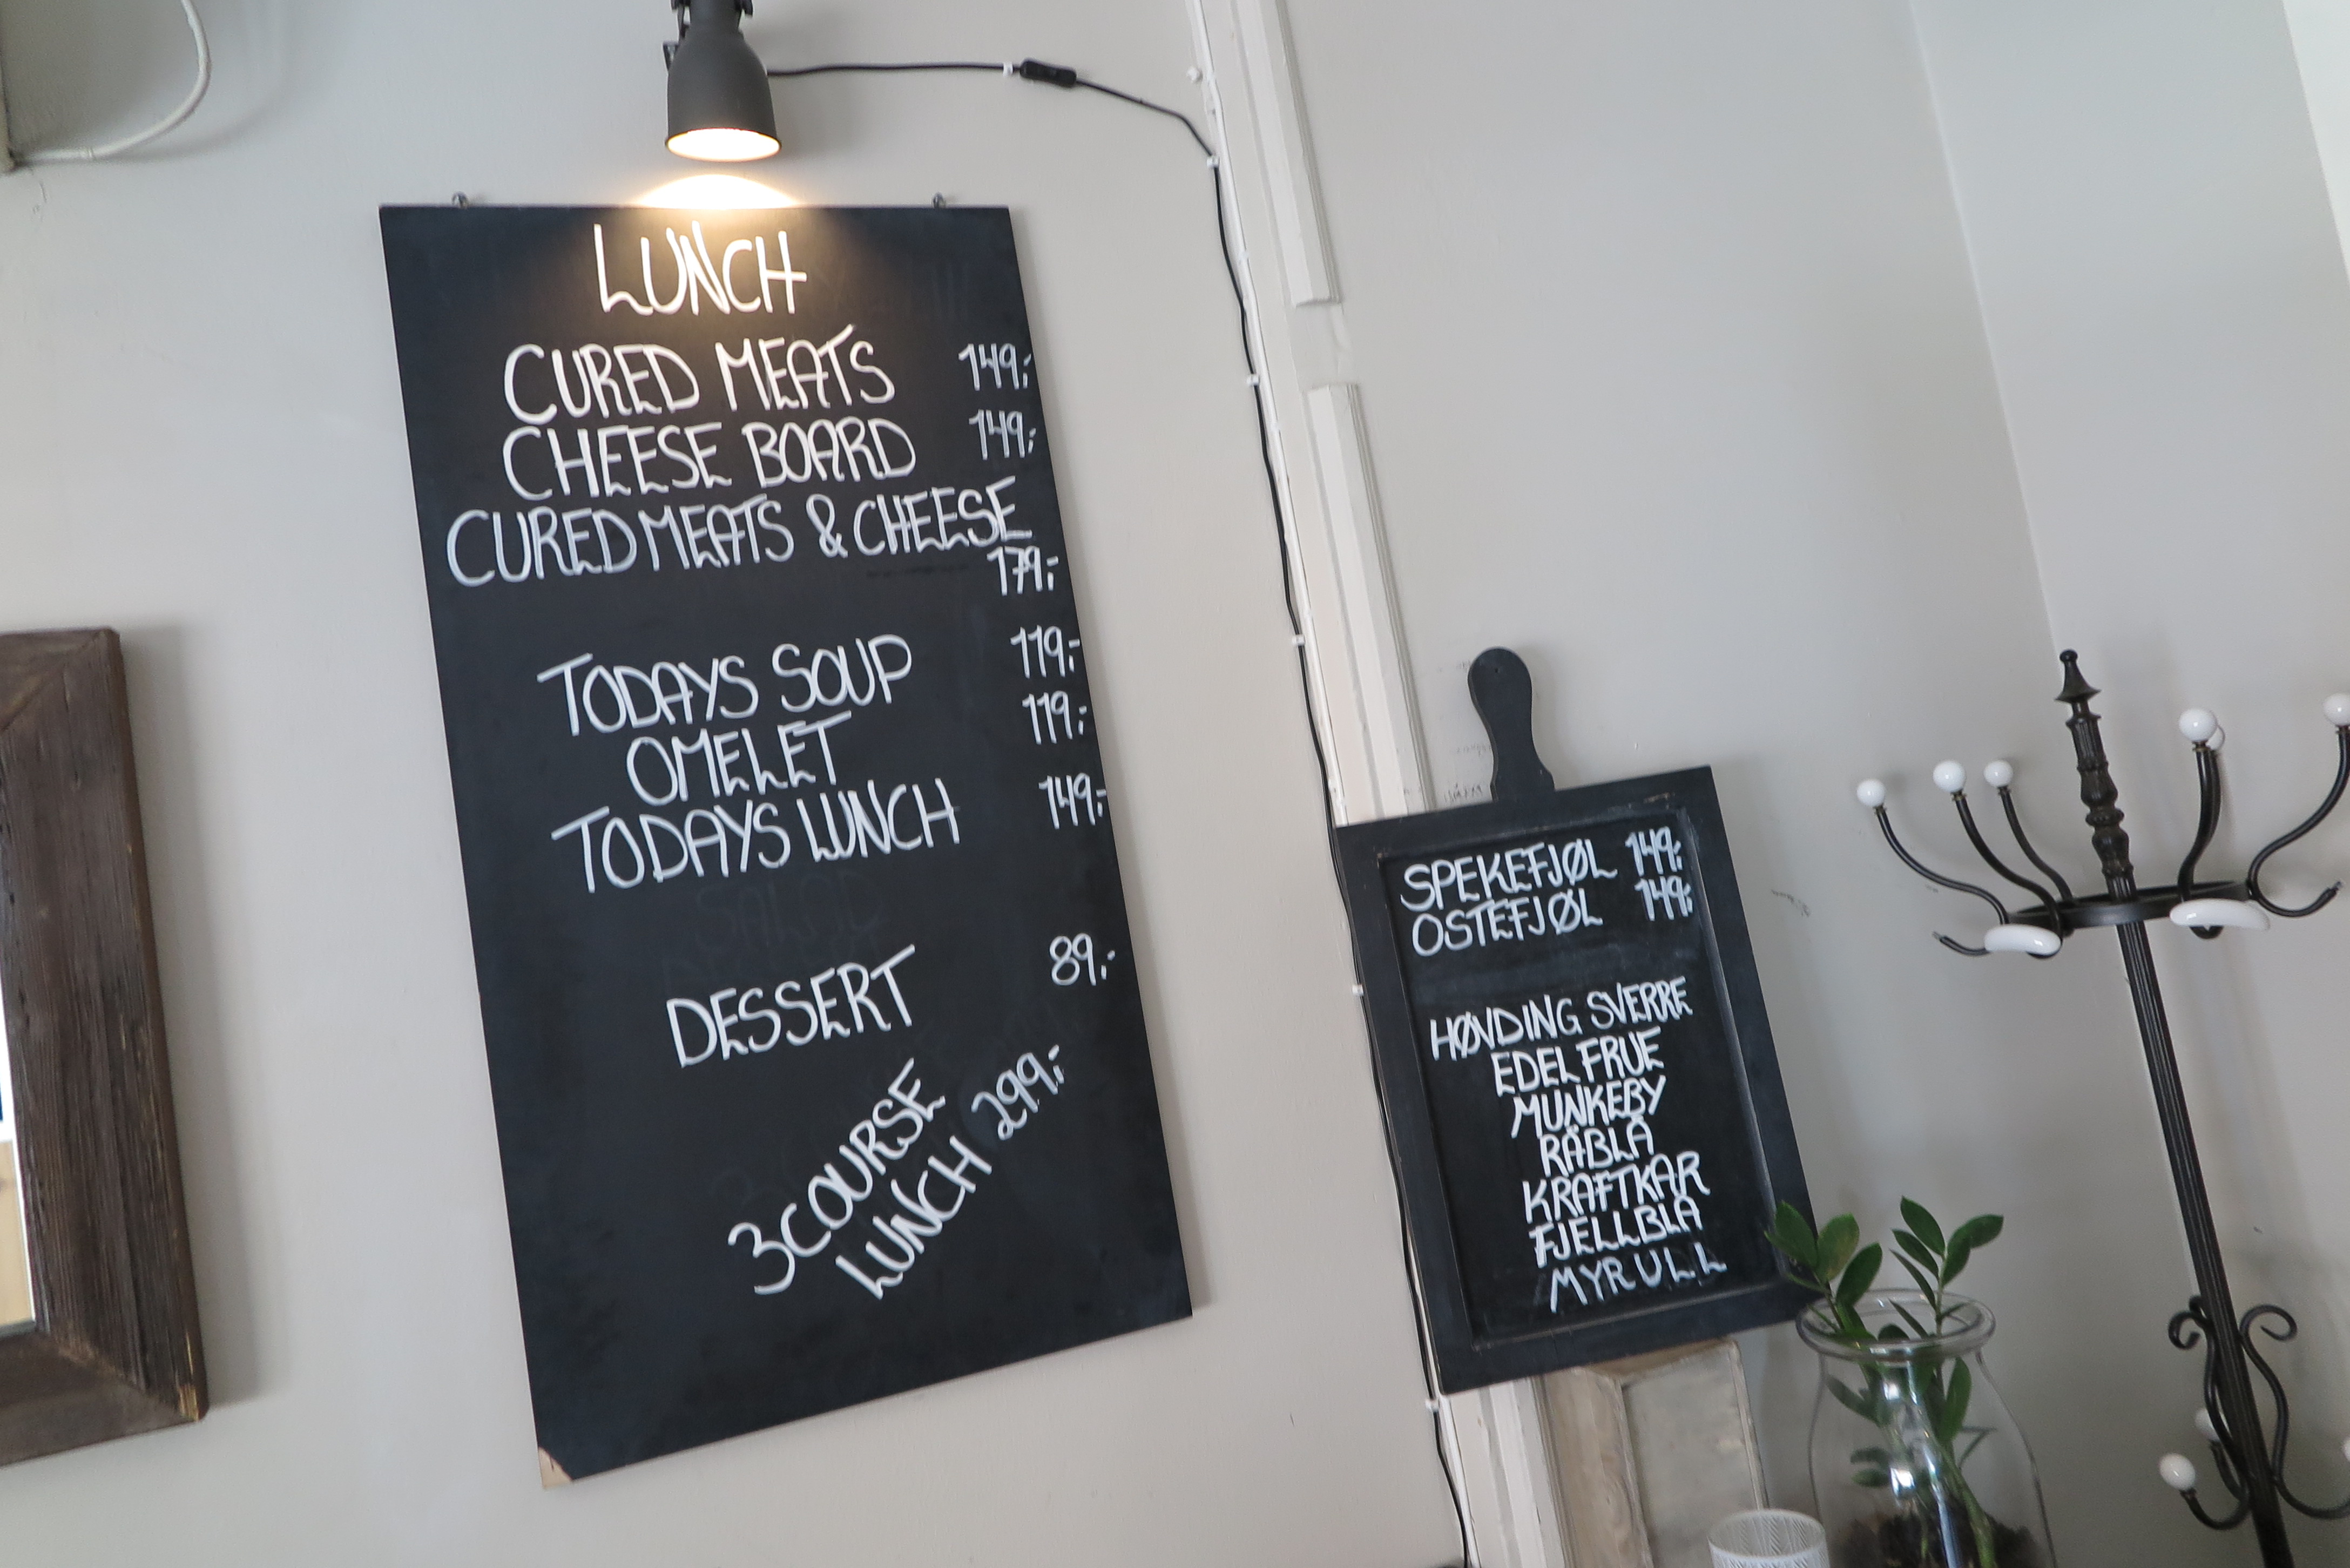 LUNCH
CURED MEATS 149,-
CHEESE BOARD 149,-
CURED MEATS & CHEESE
179,-
TODAYS SOUP 119,-
OMELET 119,-
TODAYS LUNCH 149,-
DESSERT 89,-
3 COURSE
LUNCH 299,-
SPEKEFJØL 149,-
OSTEFJØL 149,-
HØVDING SVERRE
EDEL FRUE
MUNKEBY
RÅBLÅ
KRAFTKAR
FJELLBLÅ
MYRULL